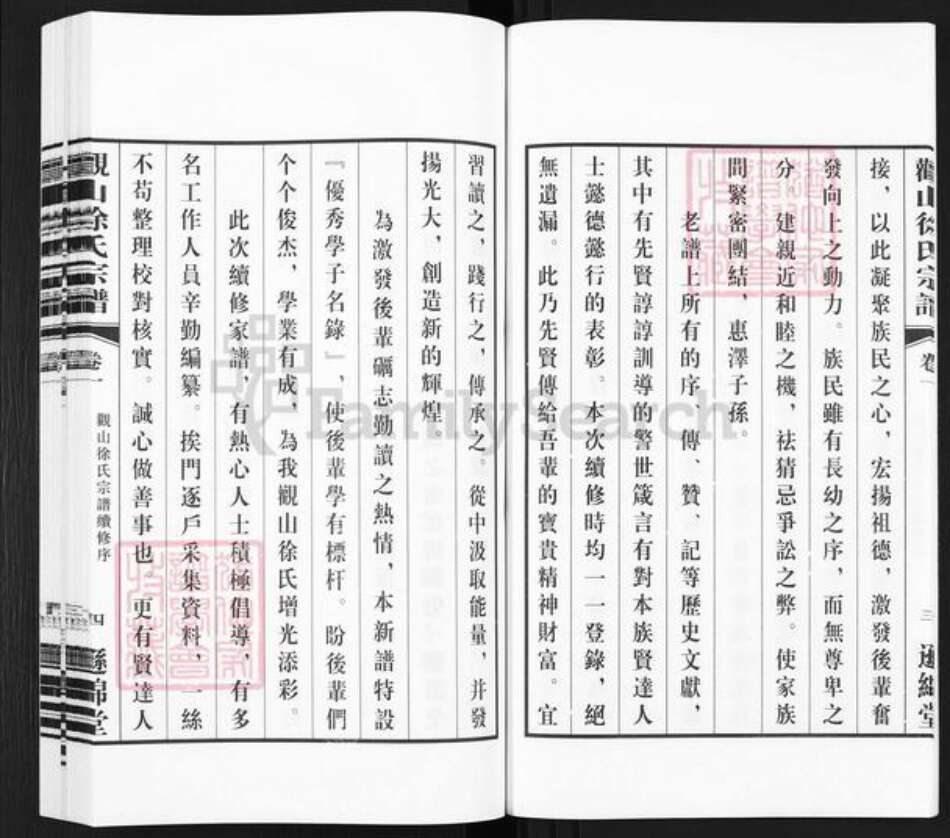 觀山徐氏宗譜
卷
三
接，以此凝聚族民之心，宏揚祖德，激發後輩奮
發向上之動力。族民雖有長幼之序，而無尊卑之
分　建親近和睦之機，袪猜忌爭訟之弊。使家族
間緊密團結，惠澤子孫。
老譜上所有的序、傳、贊、記等歷史文獻，
其中有先賢諄諄訓導的警世箴言有對本族賢達人
士懿德懿行的表彰。本次續修時均一一登錄，絕
無遺漏。此乃先賢傳給吾輩的寶貴精神財富。宜
習讀之，踐行之，傳承之。從中汲取能量，并發
揚光大，創造新的輝煌。
為激發後輩礪志勤讀之熱情，本新譜特設
『優秀學子名錄』，使後輩學有標杆。盼後輩們
个个俊杰，學業有成，為我觀山徐氏增光添彩。
此次續修家譜，有熱心人士積極倡導，有多
名工作人員辛勤編纂。挨門逐戶采集資料，一絲
不苟整理校對核實。誠心做善事也　更有賢達人
觀山徐氏宗譜
卷一
觀山徐氏宗譜續修序
四
FamilySearch